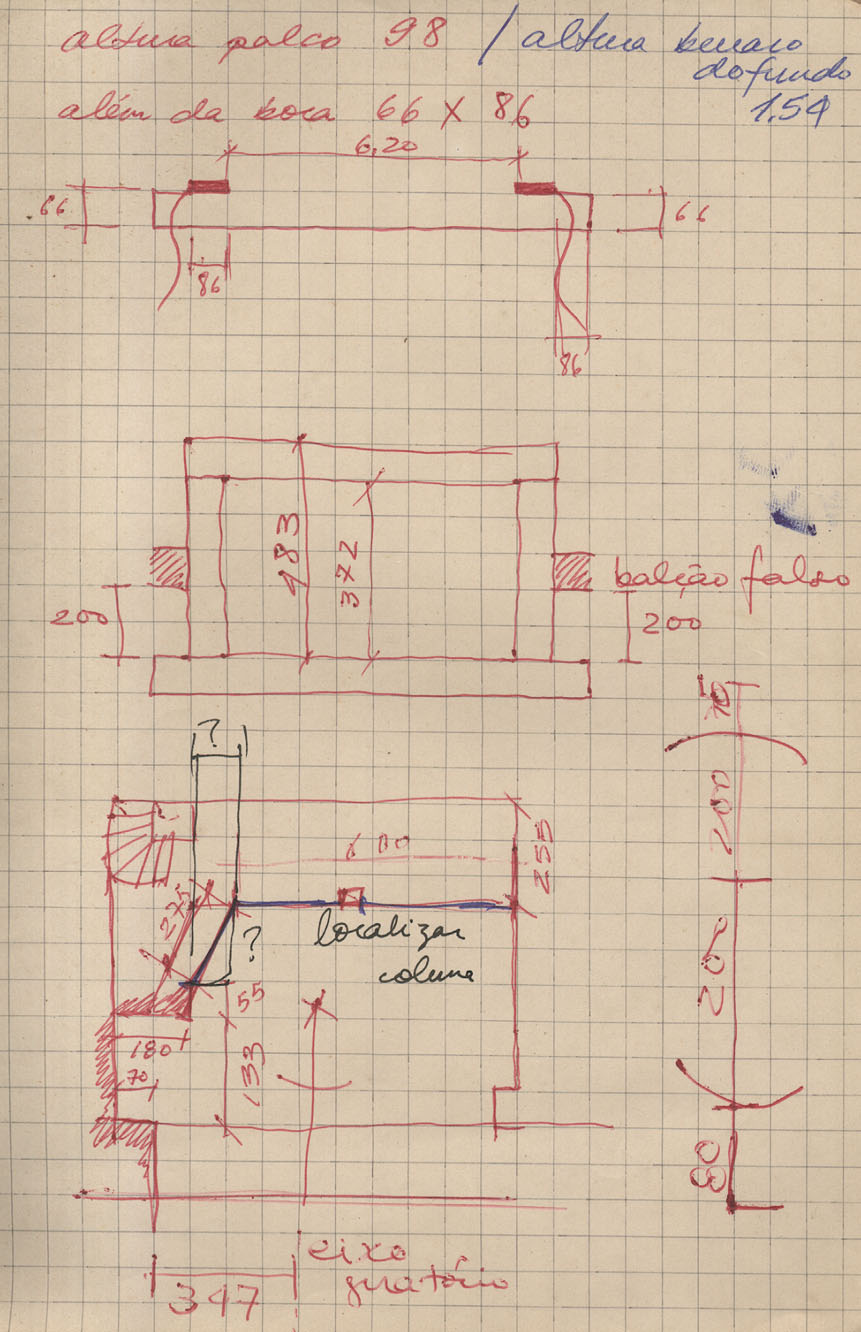 altura palco 98 / altura buraco
do fundo
1.54
além da boca 66 X 86
6,20
.66
66
86
86
483
372
balcão falso
200
200
75
?
200
600
255
275
?
localizar
coluna
200
55
180
133
70
80
eixo
giratório
347